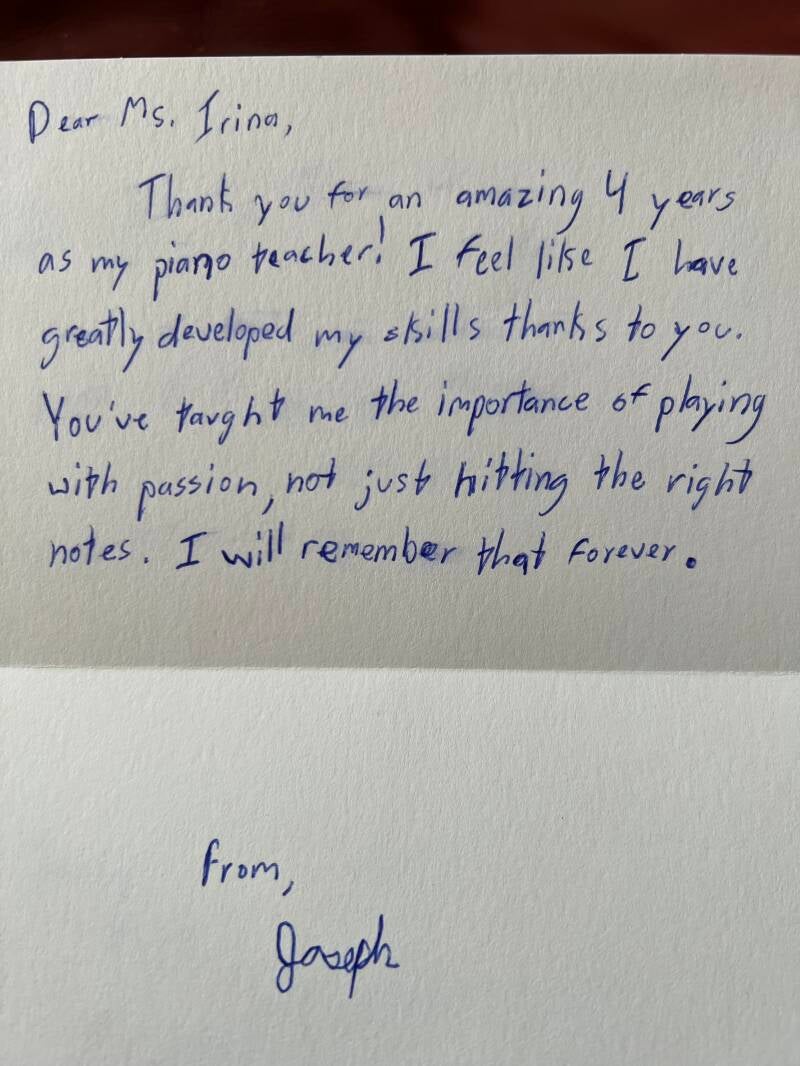 Dear Ms. Irina,
Thank you for an amazing 4 years
as my piano teacher! I feel like I have
greatly developed my skills thanks to you.
You've taught me the importance of playing
with passion, not just hitting the right
notes. I will remember that forever.
From,
Joseph